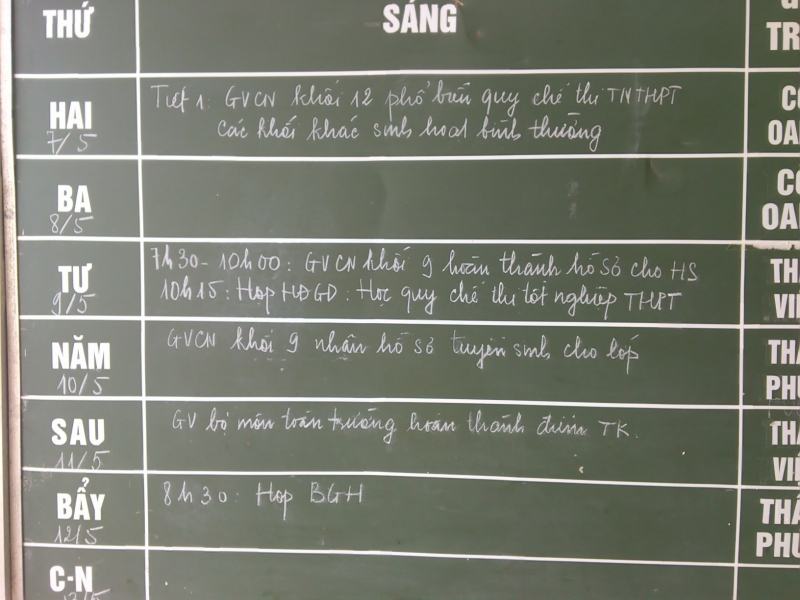 THỨ
SÁNG
TR
HAI
7/5
Tiết 1: GVCN khối 12 phổ biến quy chế thi TNTHPT
Các khối khác sinh hoạt bình thường
CÔ
OAN
BA
8/5
CÔ
OAN
TƯ
9/5
7h30-10h00: GVCN khối 9 hoàn thành hồ sơ cho HS
10h15: Họp HĐGD: Học quy chế thi tốt nghiệp THPT
TH
VI
NĂM
10/5
GVCN khối 9 nhận hồ sơ tuyển sinh cho lớp
THẦ
PHU
SAU
11/5
GV bộ môn toàn trường hoàn thành điểm TK.
THẦ
VI
BẨY
12/5
8h30: Họp BGH
THẦ
PHU
C-N
13/5